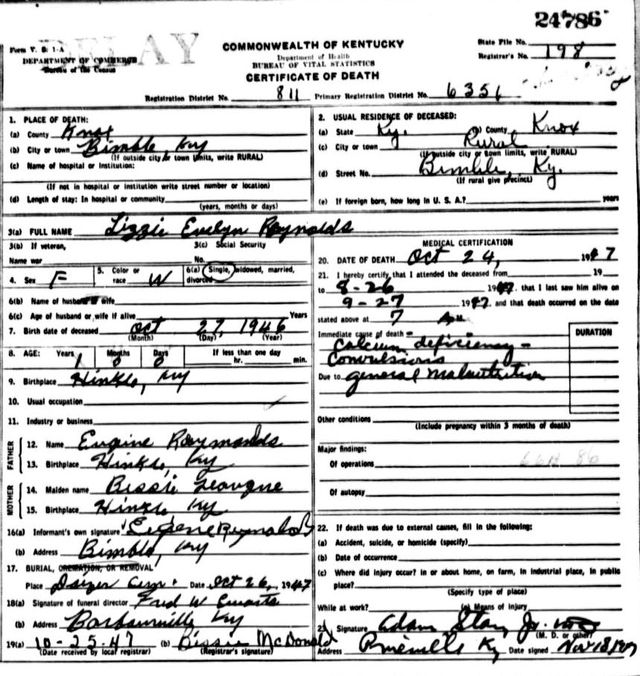 24786
DELAY
Form V. S. 1-A
DEPARTMENT OF COMMERCE
Bureau of the Census
COMMONWEALTH OF KENTUCKY
Department of Health
BUREAU OF VITAL STATISTICS
CERTIFICATE OF DEATH
State File No.
Registrar's No. 198
Registration District No. 811 Primary Registration District No. 6356
1. PLACE OF DEATH:
(a) County Knox
(b) City or town Bimble Ky
(If outside city or town limits, write RURAL)
(c) Name of hospital or institution:
(If not in hospital or institution write street number or location)
(d) Length of stay: In hospital or community
(years, months or days)
2. USUAL RESIDENCE OF DECEASED:
(a) State Ky. (b) County Knox
(c) City or town Rural
(If outside city or town limits, write RURAL)
(d) Street No. Bimble, Ky.
(If rural give precinct)
(e) If foreign born, how long in U. S. A.? years
3(a) FULL NAME Lizzie Evelyn Reynolds
3(b) If veteran, Name war
3(c) Social Security No.
4. Sex F
5. Color or race W
6(a) Single, widowed, married, divorced
6(b) Name of husband or wife
6(c) Age of husband or wife if alive Years
7. Birth date of deceased Oct 27, 1946
(Month) (Day) (Year)
8. AGE: Years Months Days If less than one day
1 0 0 hr. min.
9. Birthplace Hinkle, Ky
10. Usual occupation
11. Industry or business
FATHER
12. Name Eugine Raymonds
13. Birthplace Hinkle, Ky
MOTHER
14. Maiden name Bissie
15. Birthplace Hinkle Ky
16(a) Informant's own signature Eugene Reynolds
(b) Address Bimble, Ky
17. BURIAL, CREMATION, OR REMOVAL
Place Cem. Date Oct 26, 1947
18(a) Signature of funeral director Fred W
(b) Address Barbourville Ky
19(a) 10-25-47 (b) Bissie McDonald
(Date received by local registrar) (Registrar's signature)
MEDICAL CERTIFICATION
20. DATE OF DEATH Oct 24, 1947
21. I hereby certify that I attended the deceased from 19
to 8-26 1947, that I last saw him alive on
9-27 1947, and that death occurred on the date
stated above at 7
Immediate cause of death
Calcium deficiency -
Convulsions
Due to general malnutrition
DURATION
Other conditions
(Include pregnancy within 3 months of death)
Major findings:
Of operations
Of autopsy
22. If death was due to external causes, fill in the following:
(a) Accident, suicide, or homicide (specify)
(b) Date of occurrence
(c) Where did injury occur? in or about home, on farm, in industrial place, in public place?
(Specify type of place)
While at work? (e) Means of injury
23. Signature Adam Stacy Jr.
(M. D. or other)
Address Pineville Ky Date signed Nov 18 1947